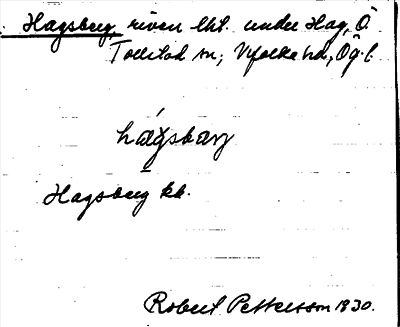 Hagsberg, riven lht. under Hag, Ö.
Tollstad sn; Vifolka hd, Ög. l.
hagsbærj
Hagsberg kk.
Robert Pettersson 1930.